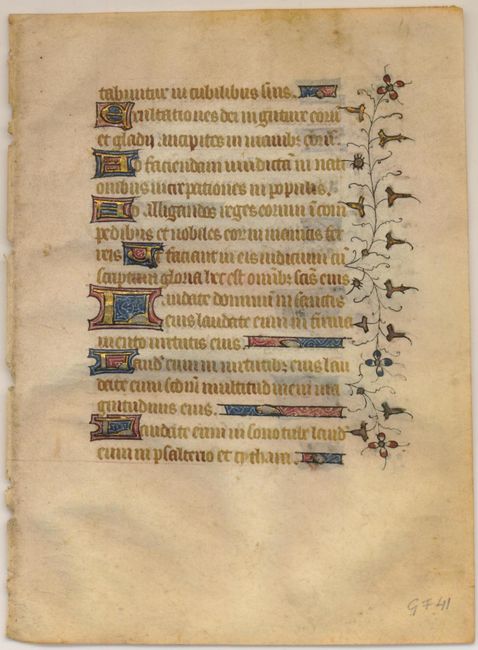 tabuntur in cubilibus suis.
Exultationes dei in guture eoru
et gladii ancipites in manibz eoru.
Ad faciendam uindictã in nati
onibus increpationes in populis.
Ad alligandos reges eorum ĩ com
pedibus et nobiles eor in manicis fer
reis Ut faciant in eis iudicium cũ
scriptum gloria hec est omibz scis eius
Laudate dominũ in sanctis
eius laudate eum in firma
mento uirtutis eius.
Laud eum in uirtutibz eius lau
date eum scdm multitudinem ma
gnitudinis eius.
Laudate eum in sono tube laud
eum in psalterio et cytham.
G F 41